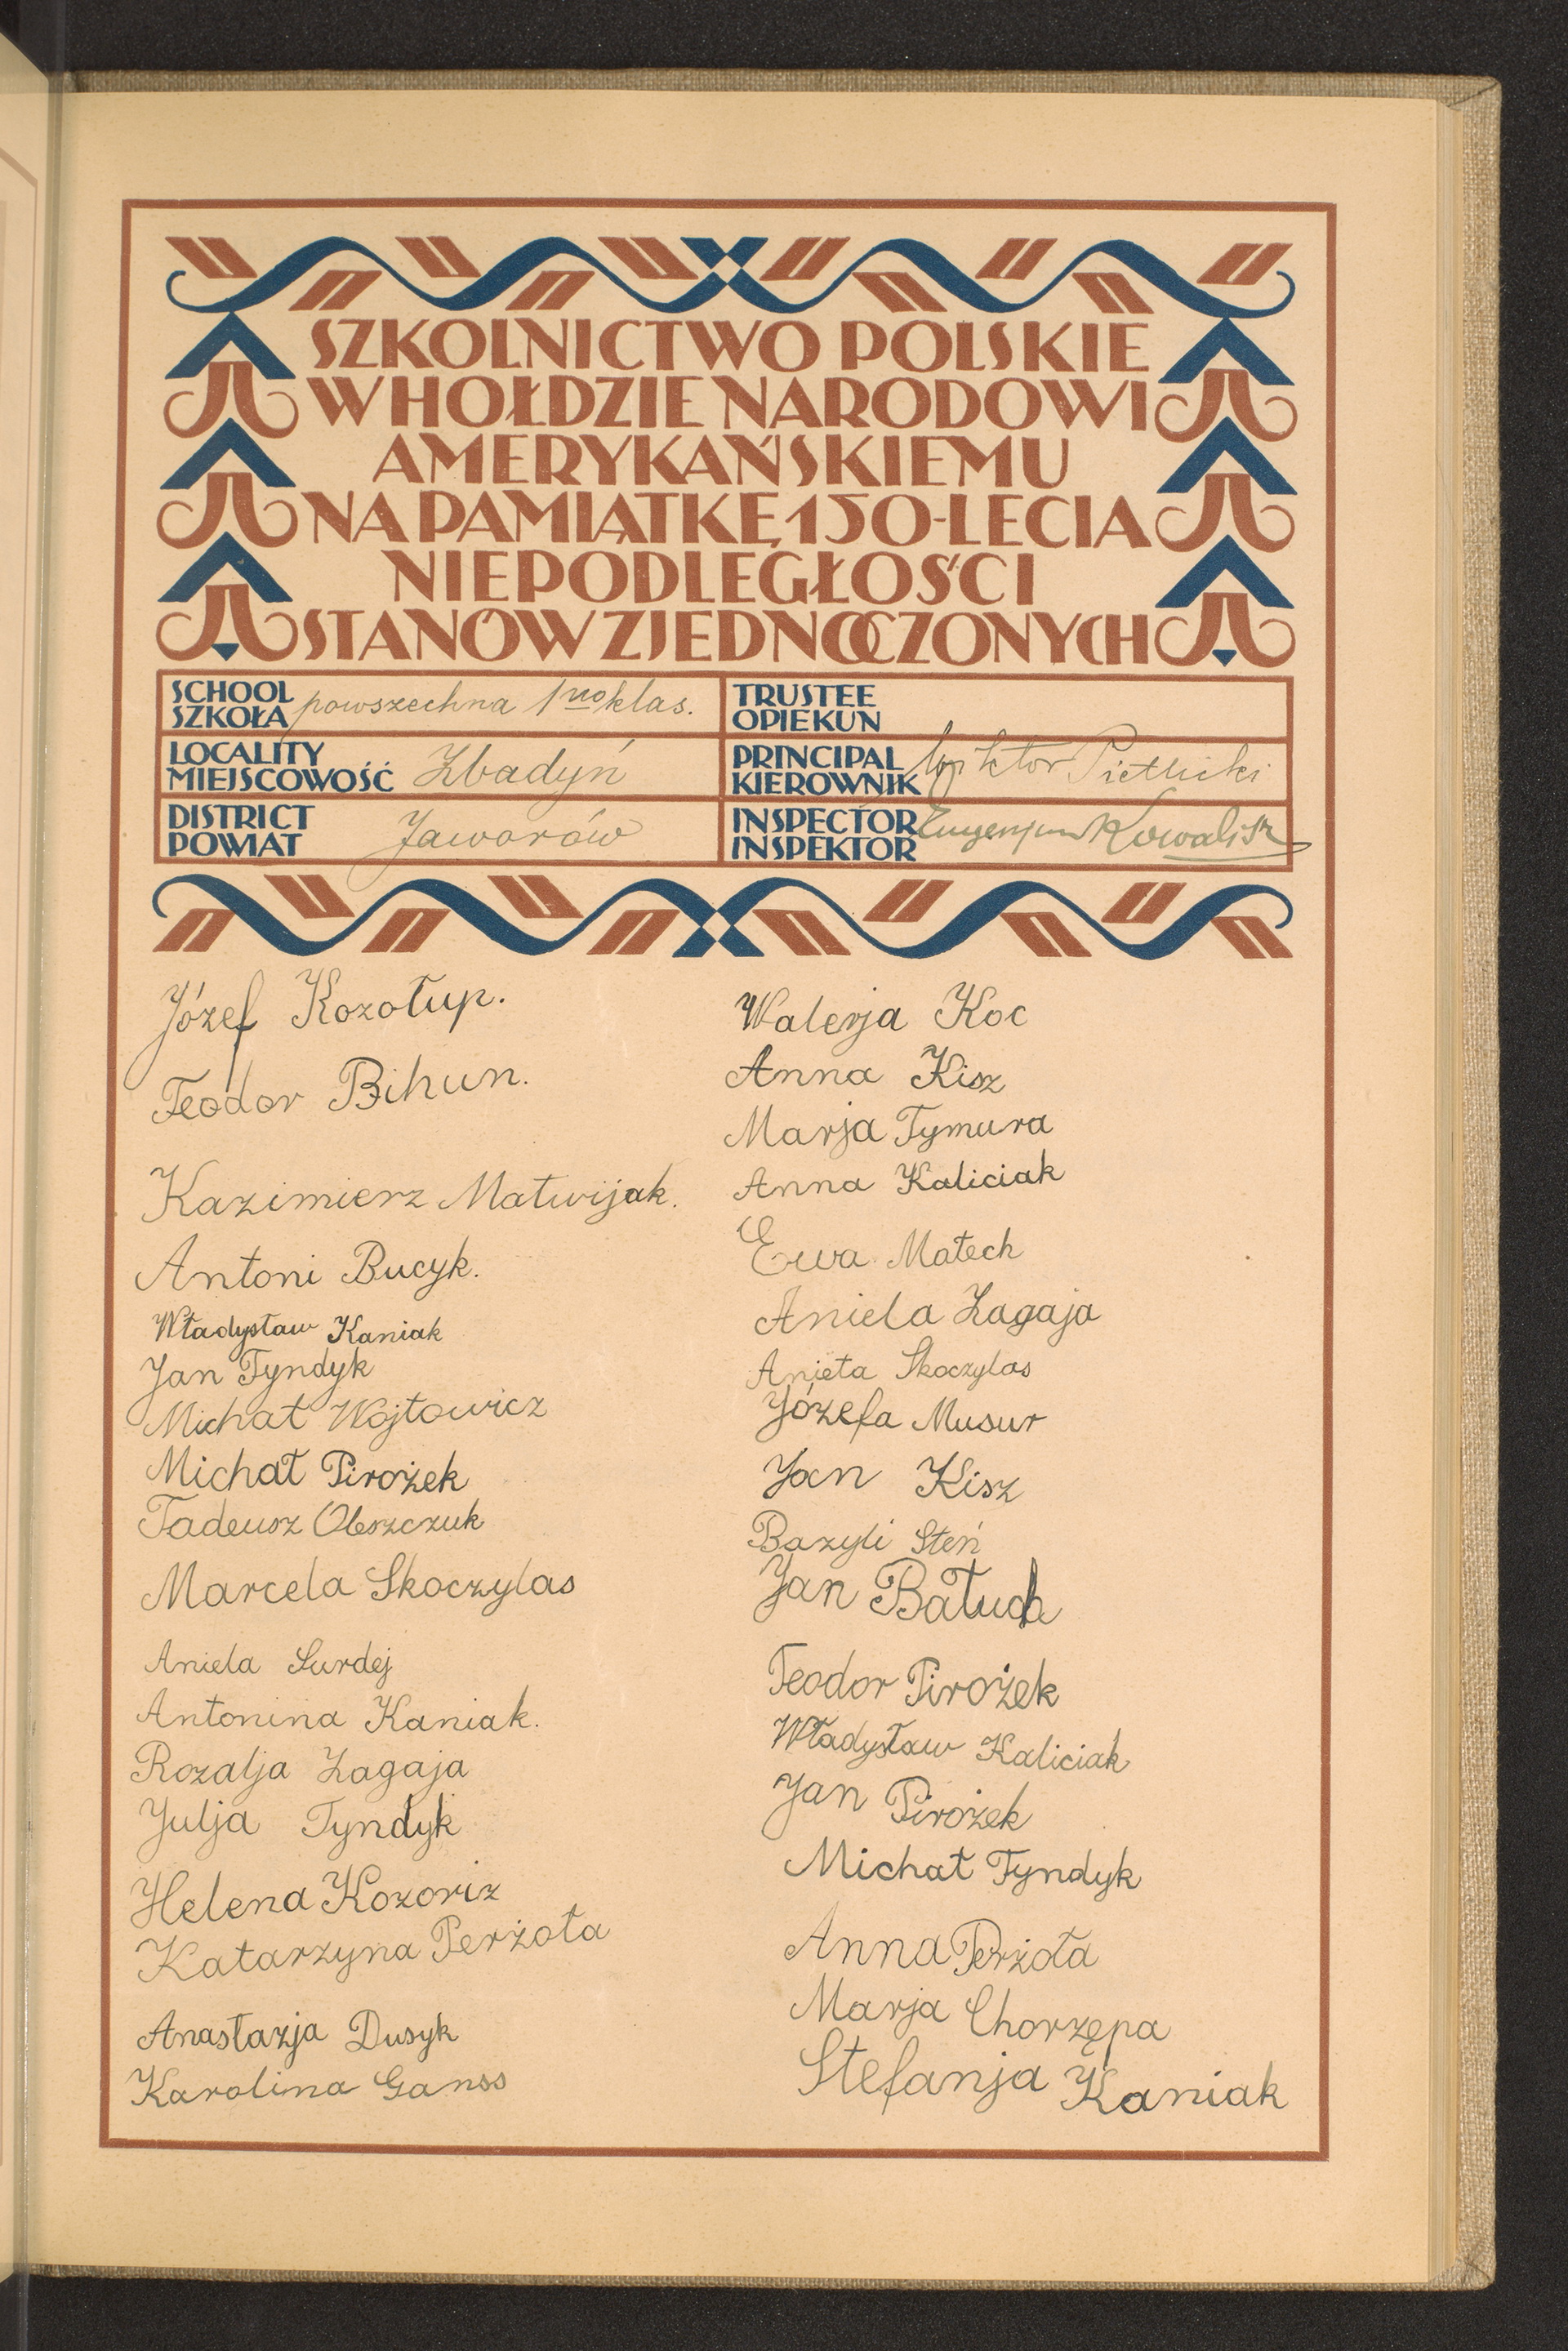 SZKOLNICTWO POLSKIE
W HOŁDZIE NARODOWI
AMERYKAŃSKIEMU
NA PAMIĄTKĘ 150-LECIA
NIEPODLEGŁOŚCI
STANÓW ZJEDNOCZONYCH
SCHOOL
SZKOŁA powszechna 1no klas.
LOCALITY
MIEJSCOWOŚĆ Zbadyń
DISTRICT
POWIAT Jaworów
TRUSTEE
OPIEKUN
PRINCIPAL
KIEROWNIK Wiktor Pietlicki
INSPECTOR
INSPEKTOR Eugenjusz Kowalisz
Józef Kozołup.
Teodor Bihun.
Kazimierz Matwijak.
Antoni Bucyk.
Władysław Kaniak
Jan Tyndyk
Michał Wojtowicz
Michał Pirożek
Tadeusz Oleszczuk
Marcela Skoczylas
Aniela Surdej
Antonina Kaniak.
Rozalja Zagaja
Julja Tyndyk
Helena Kozoriz
Katarzyna Perżoła
Anastazja Dusyk
Karolina Ganss
Walerja Koc
Anna Kisz
Marja Tymura
Anna Kaliciak
Ewa Matech
Aniela Zagaja
Anieta Skoczylas
Józefa Musur
Jan Kisz
Bazyli Steń
Jan Bałuch
Teodor Pirożek
Władysław Kaliciak
Jan Pirożek
Michał Tyndyk
Anna Perżoła
Marja Chorzępa
Stefanja Kaniak